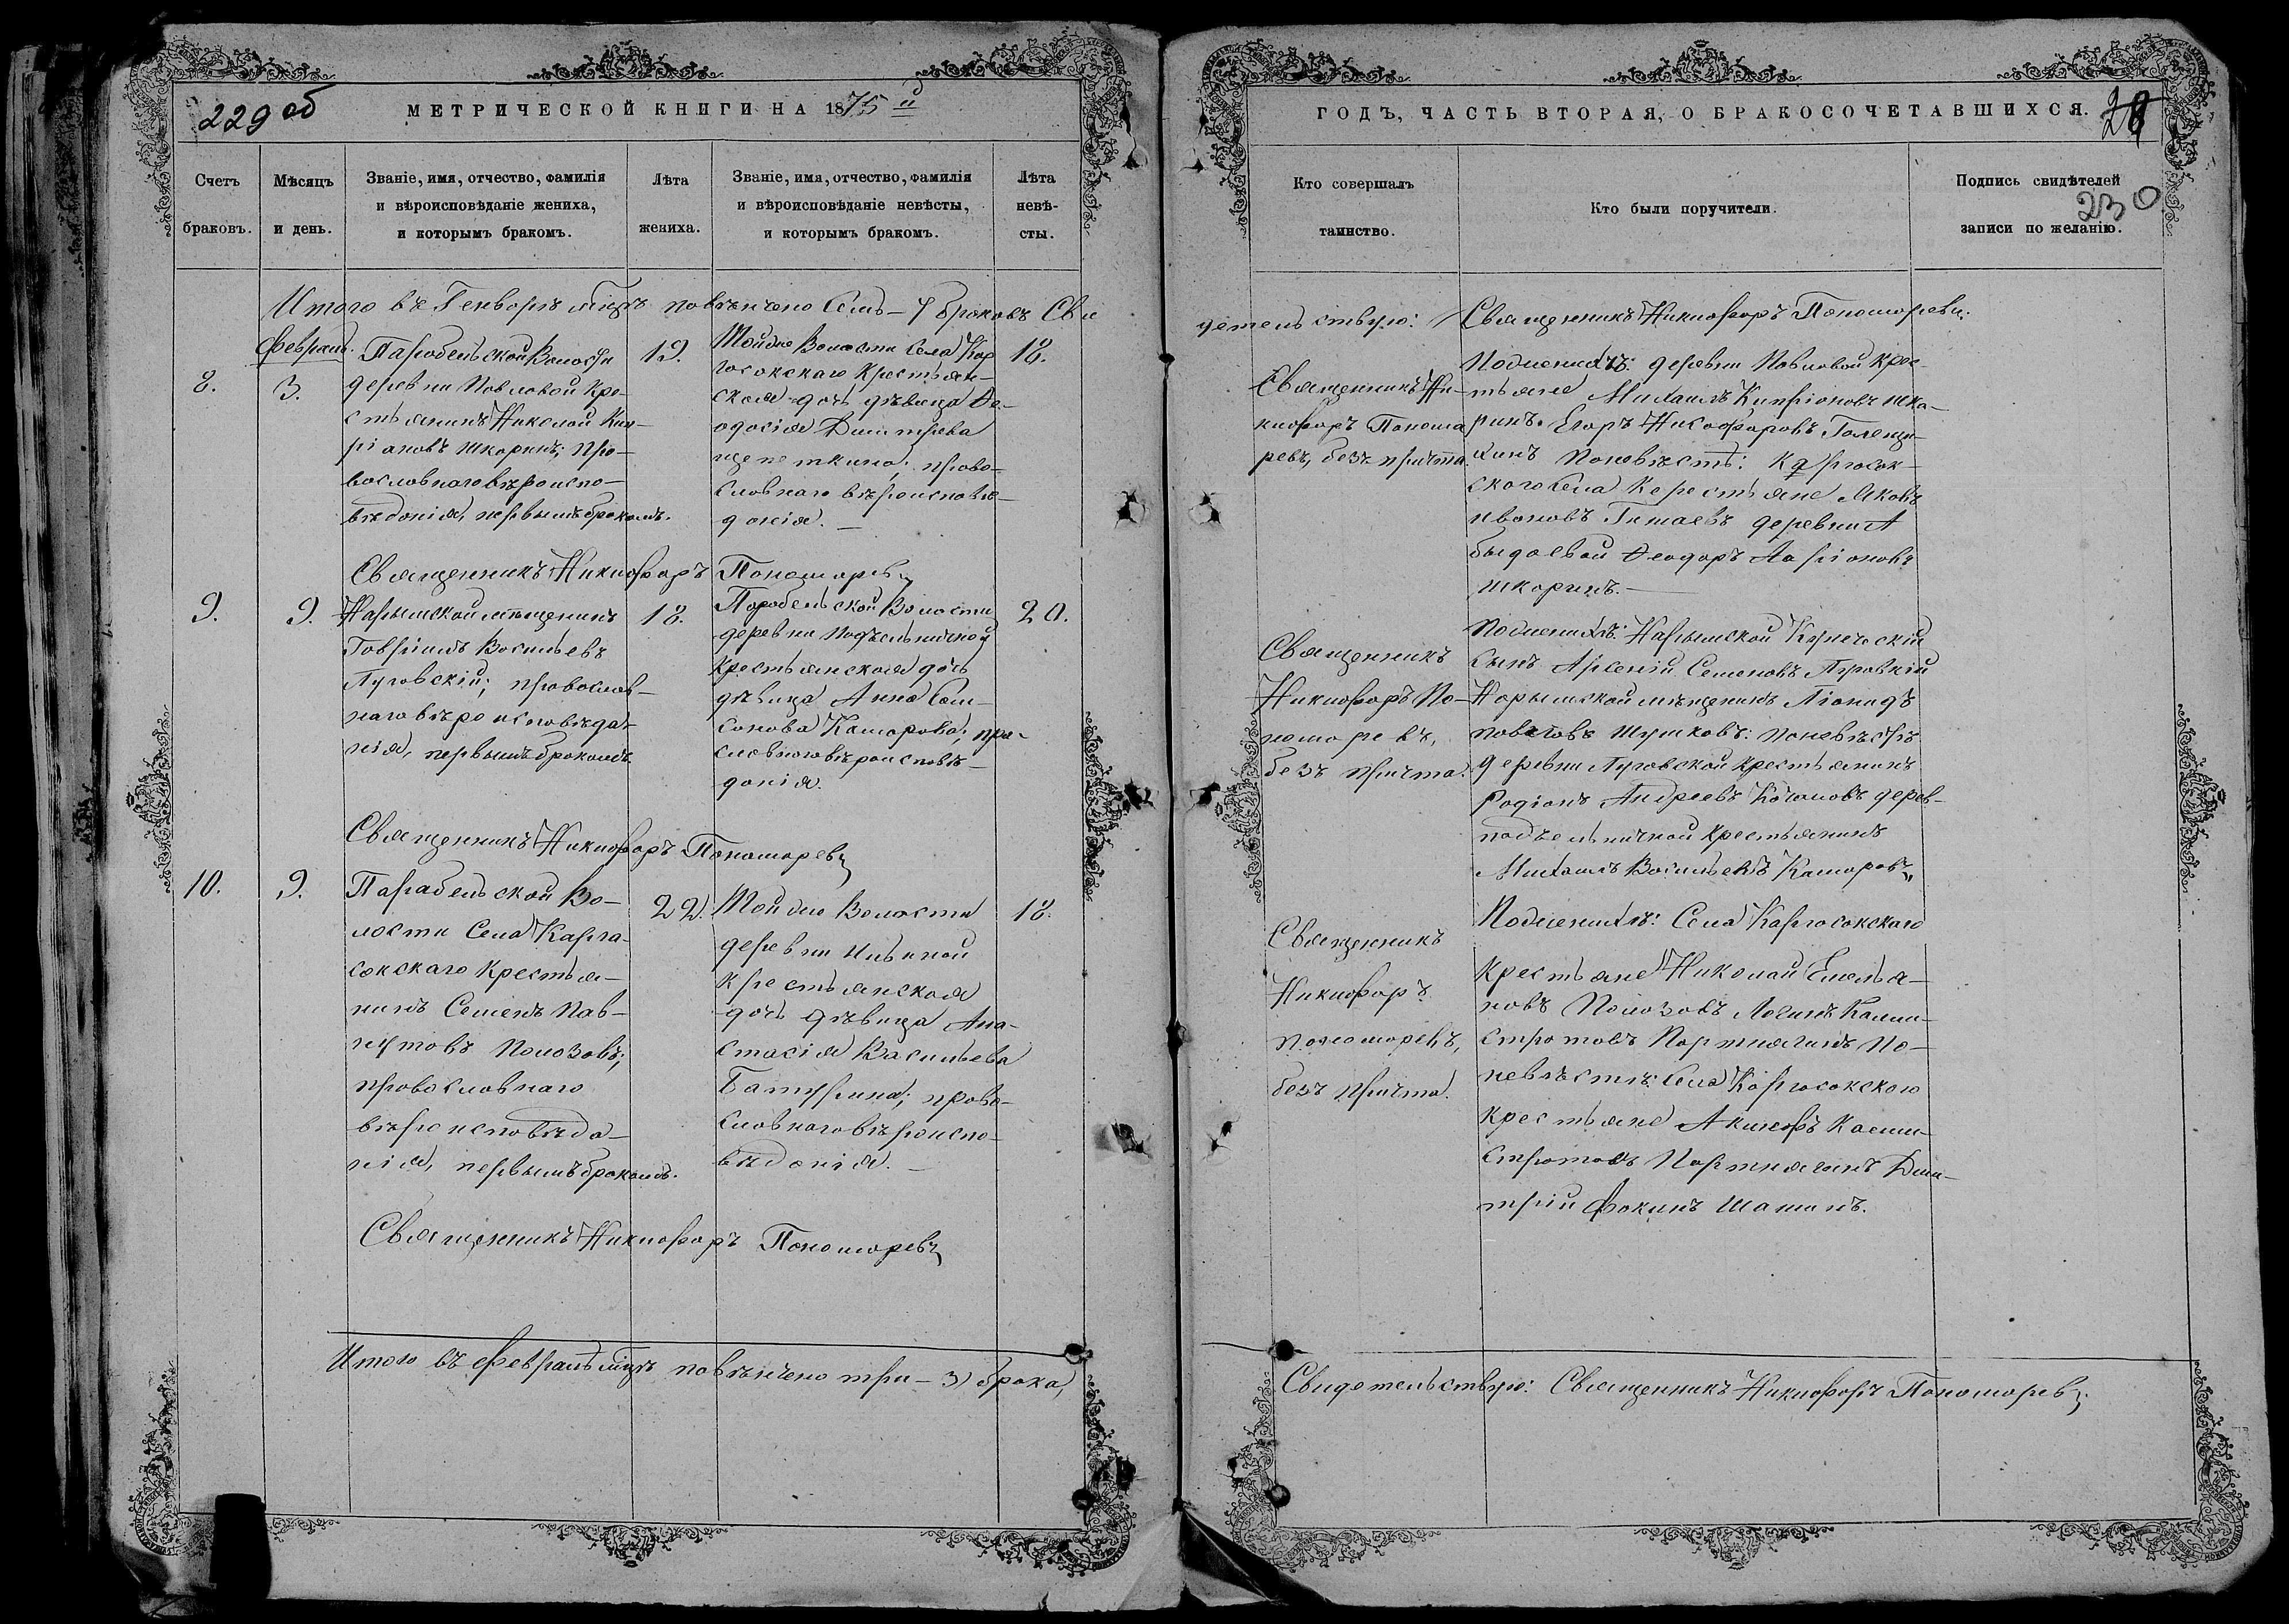 229 об
МЕТРИЧЕСКОЙ КНИГИ НА 1875й
Счетъ браковъ.
Мѣсяцъ и день.
Званіе, имя, отчество, фамилія
и вѣроисповѣданіе жениха,
и которымъ бракомъ.
Лѣта жениха.
Званіе, имя, отчество, фамилія
и вѣроисповѣданіе невѣсты,
и которымъ бракомъ.
Лѣта
невѣ-
сты.
Итого въ Генварѣ мѣцѣ повѣнчено Семь - 7 браковъ Сви
Февраль.
8.
3.
Парабельской Волости
деревни Павловой кре-
стьянинъ Николай Кип-
ріановъ Шкаринъ; пра-
вославнаго вѣроиспо-
вѣданія, первымъ бракомъ.
19.
Тойже Волости Села Кар
госокскаго Крестьян-
ская дочь дѣвица Ѳе-
одосія Димитрева
Щепеткина; право-
славнаго вѣроисповѣ-
данія.
18.
Священникъ Никифоръ Пономаревъ
9.
9.
Нарымской мѣщенинъ
Гавріилъ Васильевъ
Луговскій; православ-
наго вѣроисповѣда-
нія, первымъ бракомъ
18.
Парабельской Волости
деревни Подъельничной
крестьянская дочь
дѣвица Анна Сам-
сонова Камарова; пра-
славнаго вѣроисповѣ-
данія.
20.
Священникъ Никифоръ Пономаревъ
10.
9.
Парабельской Во-
лости Села Карга-
сокскаго Крестья-
нинъ Семенъ Пав-
нутовъ Полозовъ;
православнаго
вѣроисповѣда-
нія, первымъ бракомъ.
22.
Тойже Волости
деревни Ильиной
крестьянская
дочь дѣвица Ана-
стасія Васильева
Батурина; право-
славнаго вѣроиспо-
вѣданія.
18.
Священникъ Никифоръ Пономаревъ
Итого въ Февралѣ мѣцѣ повѣнчено три - 3) брака,
ГОДЪ, ЧАСТЬ ВТОРАЯ, О БРАКОСОЧЕТАВШИХСЯ.
230
Кто совершалъ
таинство.
Кто были поручители.
Подпись свидѣтелей
записи по желанію.
детельствую: Священникъ Никифоръ Пономаревъ.
Священникъ Ни-
кифоръ Понома
ревъ, безъ причта.
По женихѣ: деревни Павловой крес-
тьяне Михаилъ Кипріоновъ Шка-
ринъ. Егоръ Никофоровъ Голещи-
хинъ по невѣстѣ: Каргосок-
скаго Села Керестьяне Яковъ
Ивановъ Гишаевъ деревни А
быдаевой Ѳеодоръ Ларіоновъ
Шкаринъ.
Священникъ
Никифоръ По-
номаревъ,
безъ причта.
По женихѣ: Нарымской Купеческій
сынъ Арсеній Семеновъ
Нарымской мѣщенинъ Ліонидъ
Шушковъ: по невѣстѣ
деревни Луговской крестьянинъ
Родіонъ Андреевъ дерев-
подъельничной крестьянинъ
Михаилъ Васильевъ Камаровъ
Священникъ
Никифоръ
Пономоревъ,
безъ причта.
По женихѣ: Села Каргосокскаго
крестьяне Николай Емелья-
новъ Полозовъ Логинъ Кали-
стратовъ Портнягинъ по-
невѣстѣ: Села Каргосокскаго
крестьяне Акимовъ Кали-
стратовъ Портнягинъ Дими-
трій Фокинъ Шатинъ.
Свидетельствую: Священникъ Никифоръ Пономоревъ.